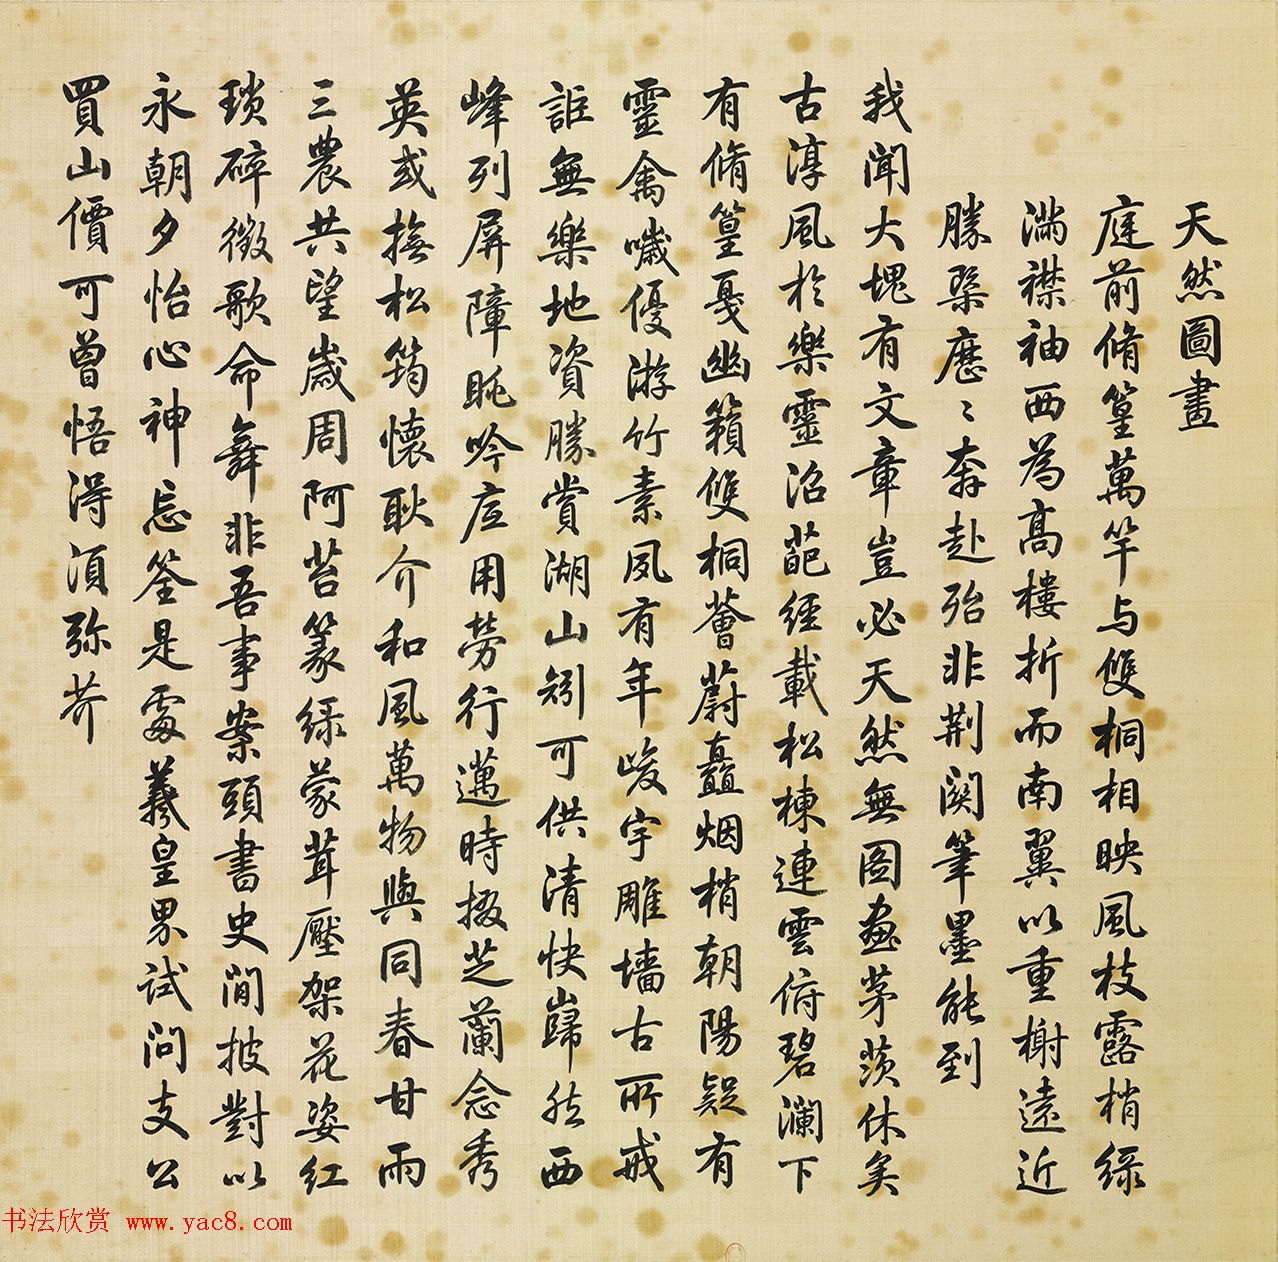 天然圖畫
庭前脩篁萬竿与雙桐相映風枝露梢綠
滿襟袖西為高樓折而南翼以重榭遠近
勝槩歷〻奔赴殆非荆関筆墨能到
我聞大塊有文章豈必天然無圖畫茅茨休矣
古淳風於樂靈沼葩經載松棟連雲俯碧瀾下
有脩篁戛幽籟雙桐薈蔚矗烟梢朝陽疑有
靈禽噦優游竹素夙有年峻宇雕墻古所戒
詎無樂地資勝賞湖山矧可供清快巋然西
峰列屏障眺吟底用勞行邁時掇芝蘭念秀
英或撫松筠懷耿介和風萬物與同春甘雨
三農共望歲周阿苔篆綠蒙茸壓架花姿紅
瑣碎徵歌命舞非吾事案頭書史閒披對以
永朝夕怡心神忘筌是處羲皇界試問支公
買山價可曾悟得須弥芥
书法欣赏 www.yac8.com